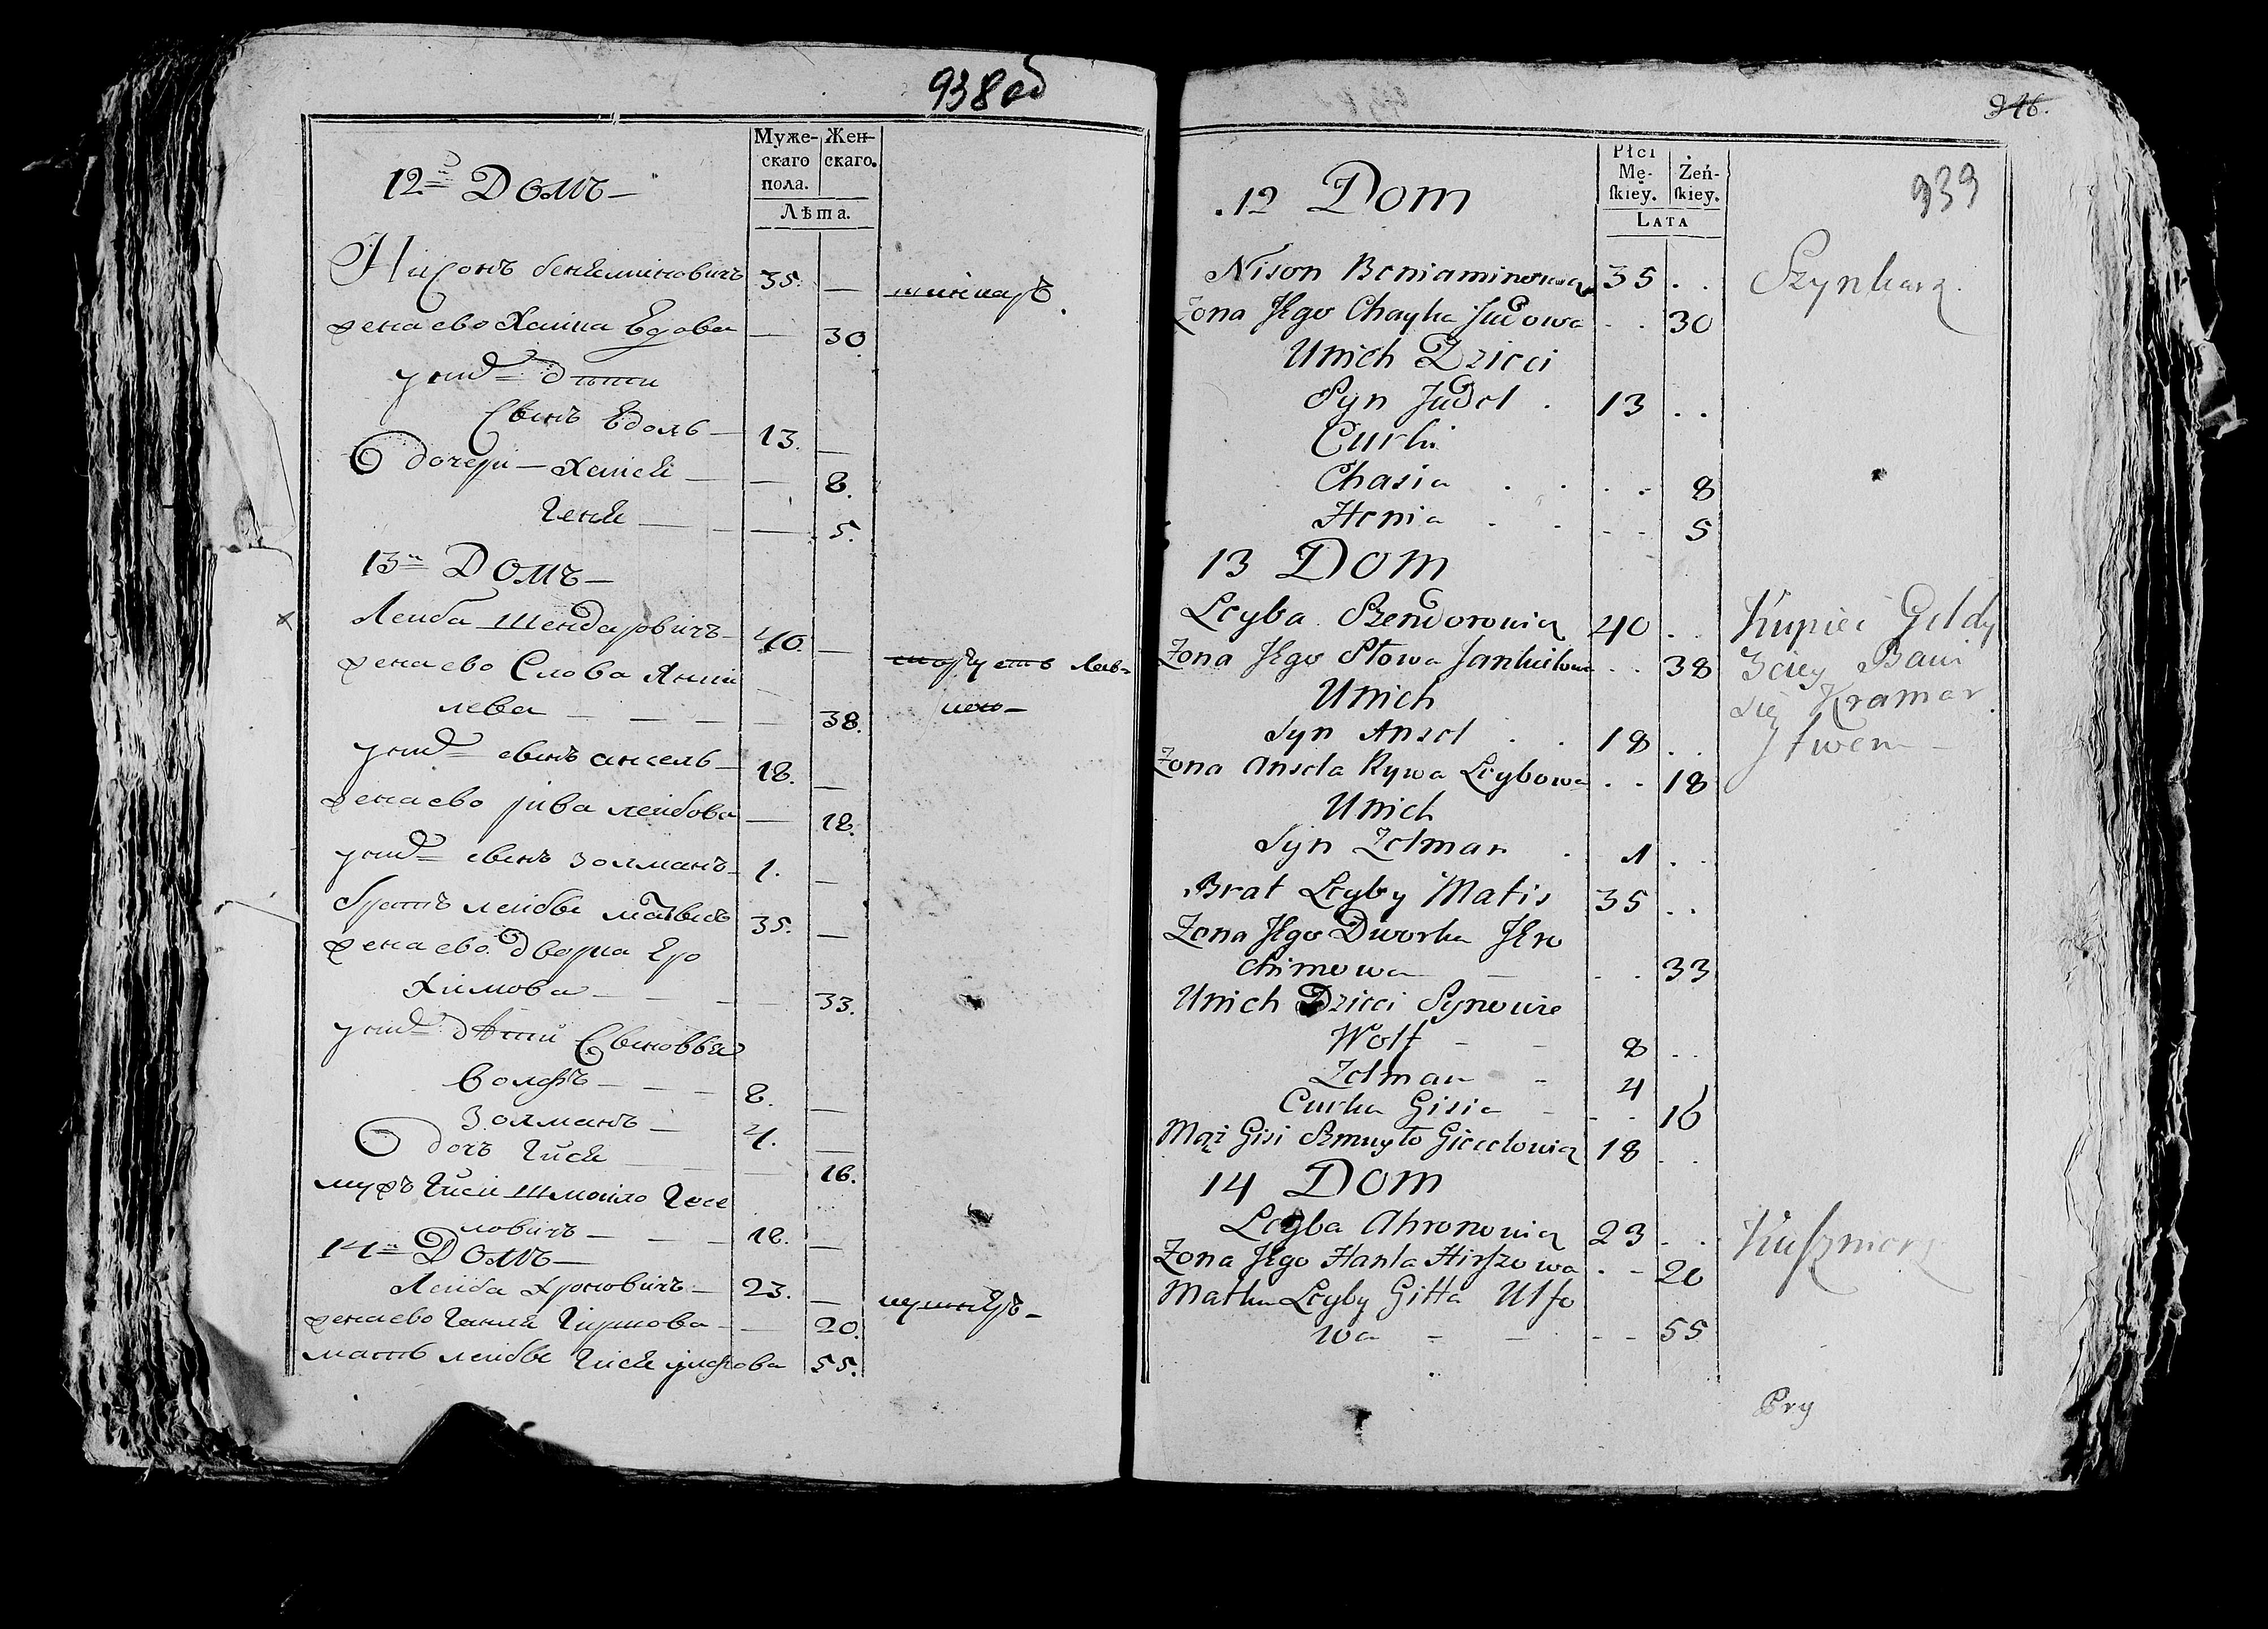 938 об
Муже- Жен-
скаго скаго.
пола.
Лѣта.
12й Домъ
Нисонъ бениеминовичъ 35. — шинкаръ.
жена ево Хаика Едова — 30
у них дѣти
Свинъ Едоль — 13. —
дочери — Хасия — 8.
Геня — 5.
13й Домъ —
Леиба Шендаровичъ 40. —
жена ево Слова Янки торгуетъ лав-
лева — 38. кою —
у них свинъ ансель — 18. —
жена ево рива леибова — 18.
у них свинъ золманъ 1. —
братъ леибы 35. —
жена ево дворка Еро
химова — 33.
у них дѣти Свиновья
Волфъ — 8. —
Золманъ — 4. —
дочъ Гися — 16.
мужъ Гиси Шмоило Гесе
ловичъ — 18. —
14й Домъ —
Леиба Ароновичъ — 23. —
жена ево Ганля Гиршова — 20.
мать леибы 55.
946.
939
Płci
Mę- Żeń-
skiey. skiey.
LATA
.12 Dom
Nison Beniaminowicz 35 . . Szynkarz.
Zona Jego Chayka Judowa . . 30
U nich Dzieci
Syn Judel . 13 . .
Curki
Chasia . . . . 8
Henia . . - - 5
13 Dom
Leyba Szendorowicz 40 . . Kupiec Geldy
Zona Jego Słowa Jankielowa . . 38 3ciey Bawi
U nich się Kramar
Syn Ansel . . 18 . . stwem —
Zona Ansela Rywa Leybowa . . 18
U nich
Syn Zelman . 1 . .
Brat Leyby Matis 35 . .
Zona Jego Dworka Jero
chimowa — - . 33
U nich Dzieci Synowie
Wolf - - 8 . .
Zelman - 4
Curka Gisia - - . 16
Mąż Gisi Szmuyło Giecelowicz 18 . .
14 Dom
Leyba Ahronowicz 23 . . Kuszmierz
Zona Jego Hanla Hirszowa . - 20
Matka Leyby Gitta Ulfo
wa - - - - 55
Pry